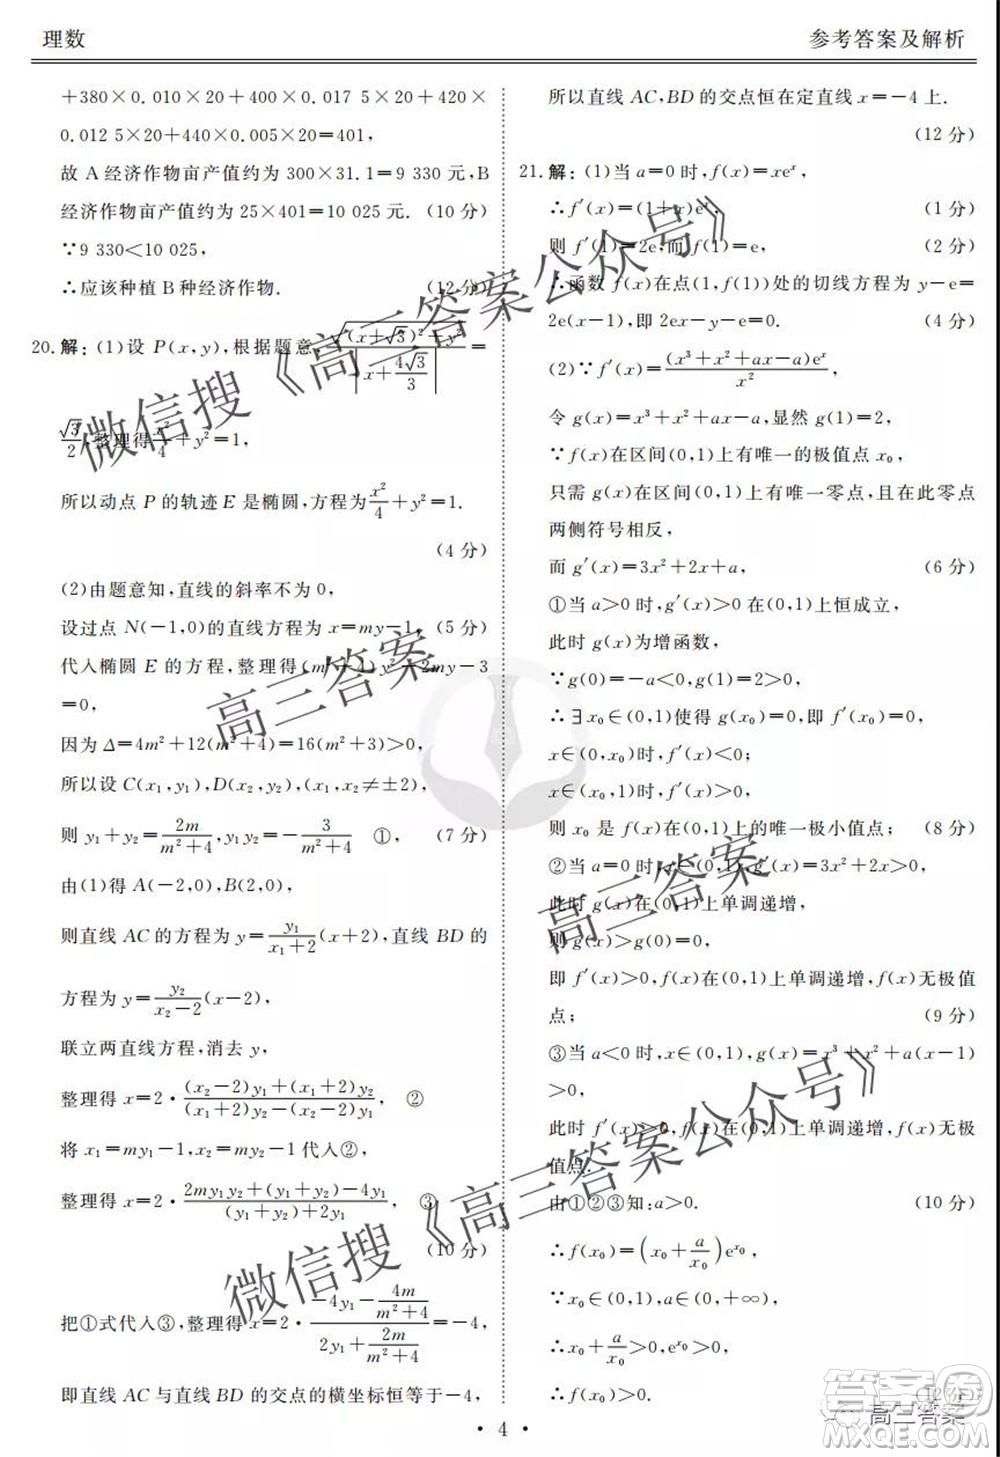 理数
参考答案及解析
+380×0.010×20+400×0.017 5×20+420×
0.012 5×20+440×0.005×20=401,
故 A 经济作物亩产值约为 300×31.1=9 330 元, B
经济作物亩产值约为 25×401=10 025 元. (10 分)
∵9 330<10 025,
∴应该种植 B 种经济作物. (12 分)
20. 解: (1)设 P(x,y),根据题意,√((x+√3)²+y²)/|x+4√3/3|=
√3/2,整理得x²/4+y²=1,
所以动点 P 的轨迹 E 是椭圆,方程为x²/4+y²=1.
(4 分)
(2)由题意知,直线的斜率不为 0,
设过点 N(-1,0)的直线方程为 x=my-1, (5 分)
代入椭圆 E 的方程,整理得(m²+4)y²-2my-3
=0,
因为 Δ=4m²+12(m²+4)=16(m²+3)>0,
所以设 C(x₁,y₁),D(x₂,y₂)(x₁,x₂≠±2),
则 y₁+y₂=2m/(m²+4),y₁y₂=-3/(m²+4) ①, (7 分)
由(1)得 A(-2,0),B(2,0),
则直线 AC 的方程为 y=y₁/(x₁+2)(x+2),直线 BD 的
方程为 y=y₂/(x₂-2)(x-2),
联立两直线方程,消去 y,
整理得 x=2·((x₂-2)y₁+(x₁+2)y₂)/((x₁+2)y₂-(x₂-2)y₁), ②
将 x₁=my₁-1,x₂=my₂-1 代入②,
整理得 x=2·(2my₁y₂+(y₁+y₂)-4y₁)/((y₁+y₂)+2y₁), ③
(10 分)
把①式代入③,整理得 x=2·(-4y₁-4m/(m²+4))/(2y₁+2m/(m²+4))=-4,
即直线 AC 与直线 BD 的交点的横坐标恒等于-4,
所以直线 AC,BD 的交点恒在定直线 x=-4 上.
(12 分)
21. 解: (1)当 a=0 时,f(x)=xeˣ,
∴f′(x)=(1+x)eˣ, (1 分)
则 f′(1)=2e,而 f(1)=e, (2 分)
∴函数 f(x)在点(1,f(1))处的切线方程为 y-e=
2e(x-1),即 2ex-y-e=0. (4 分)
(2)∵f′(x)=(x³+x²+ax-a)eˣ/x²,
令 g(x)=x³+x²+ax-a,显然 g(1)=2,
∵f(x)在区间(0,1)上有唯一的极值点 x₀,
只需 g(x)在区间(0,1)上有唯一零点,且在此零点
两侧符号相反,
而 g′(x)=3x²+2x+a, (6 分)
①当 a>0 时,g′(x)>0 在(0,1)上恒成立,
此时 g(x)为增函数,
∵g(0)=-a<0,g(1)=2>0,
∴∃x₀∈(0,1)使得 g(x₀)=0,即 f′(x₀)=0,
x∈(0,x₀)时,f′(x)<0,
x∈(x₀,1)时,f′(x)>0,
则 x₀ 是 f(x)在(0,1)上的唯一极小值点; (8 分)
②当 a=0 时,x∈(0,1),g′(x)=3x²+2x>0,
此时 g(x)在(0,1)上单调递增,
则 g(x)>g(0)=0,
即 f′(x)>0,f(x)在(0,1)上单调递增,f(x)无极值
点; (9 分)
③当 a<0 时,x∈(0,1),g(x)=x³+x²+a(x-1)
>0,
此时 f′(x)>0,f(x)在(0,1)上单调递增,f(x)无极
值点.
由①②③知:a>0. (10 分)
∴f(x₀)=(x₀+a/x₀)eˣ⁰,
∵x₀∈(0,1),a∈(0,+∞),
∴x₀+a/x₀>0,eˣ⁰>0,
∴f(x₀)>0. (12 分)
· 4 ·
微信搜《高三答案公众号》
高三答案
高三答案
微信搜《高三答案公众号》
高三答案
答案圈
MXQE.COM